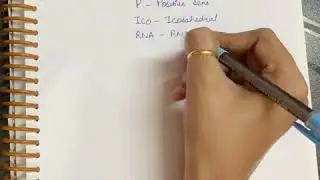 P - Positive Sens
Ico - Icosahedral
RNA - RN